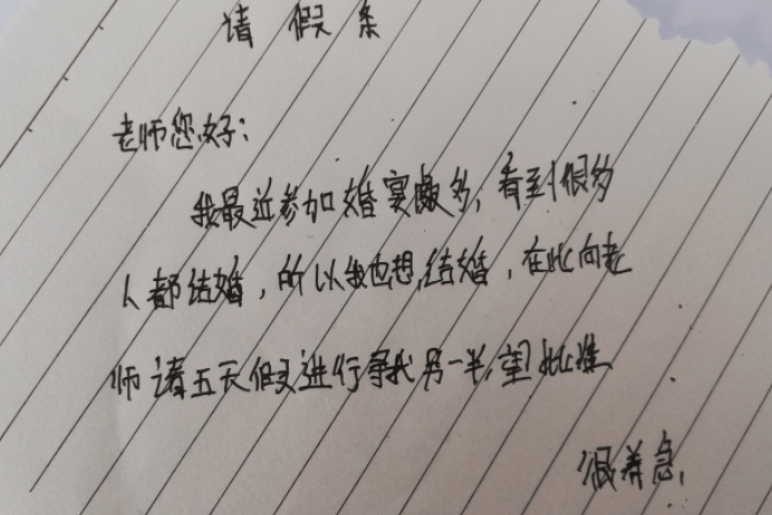 请假条
老师您好:
我最近参加婚宴颇多,看到很多
人都结婚,所以我也想结婚,在此向老
师请五天假进行寻找另一半,望批准
很着急,